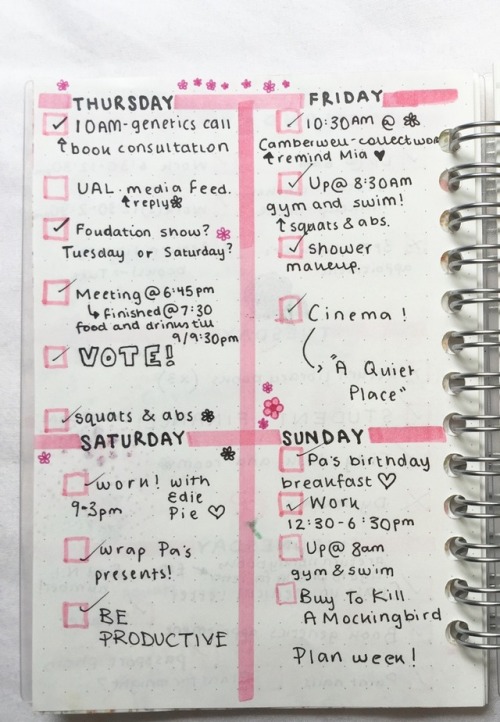 THURSDAY
10AM-genetics call
↑book consultation
UAL. media feed.
↑reply
Foudation show?
Tuesday or Saturday?
Meeting @ 6:45pm
↳ finished @ 7:30
food and drinks till
9/9:30pm
VOTE!
squats & abs
FRIDAY
10:30AM @
Camberwell-collect work
↑remind Mia ♥
Up@ 8:30AM
gym and swim!
↑squats & abs.
shower
makeup.
Cinema !
"A Quiet
Place"
SATURDAY
work! with
Edie
9-3pm Pie ♡
wrap Pa's
presents!
BE
PRODUCTIVE
SUNDAY
Pa's birthday
breakfast ♡
Work
12:30-6:30pm
Up@ 8am
gym & swim
Buy To Kill
A Mockingbird
Plan week!